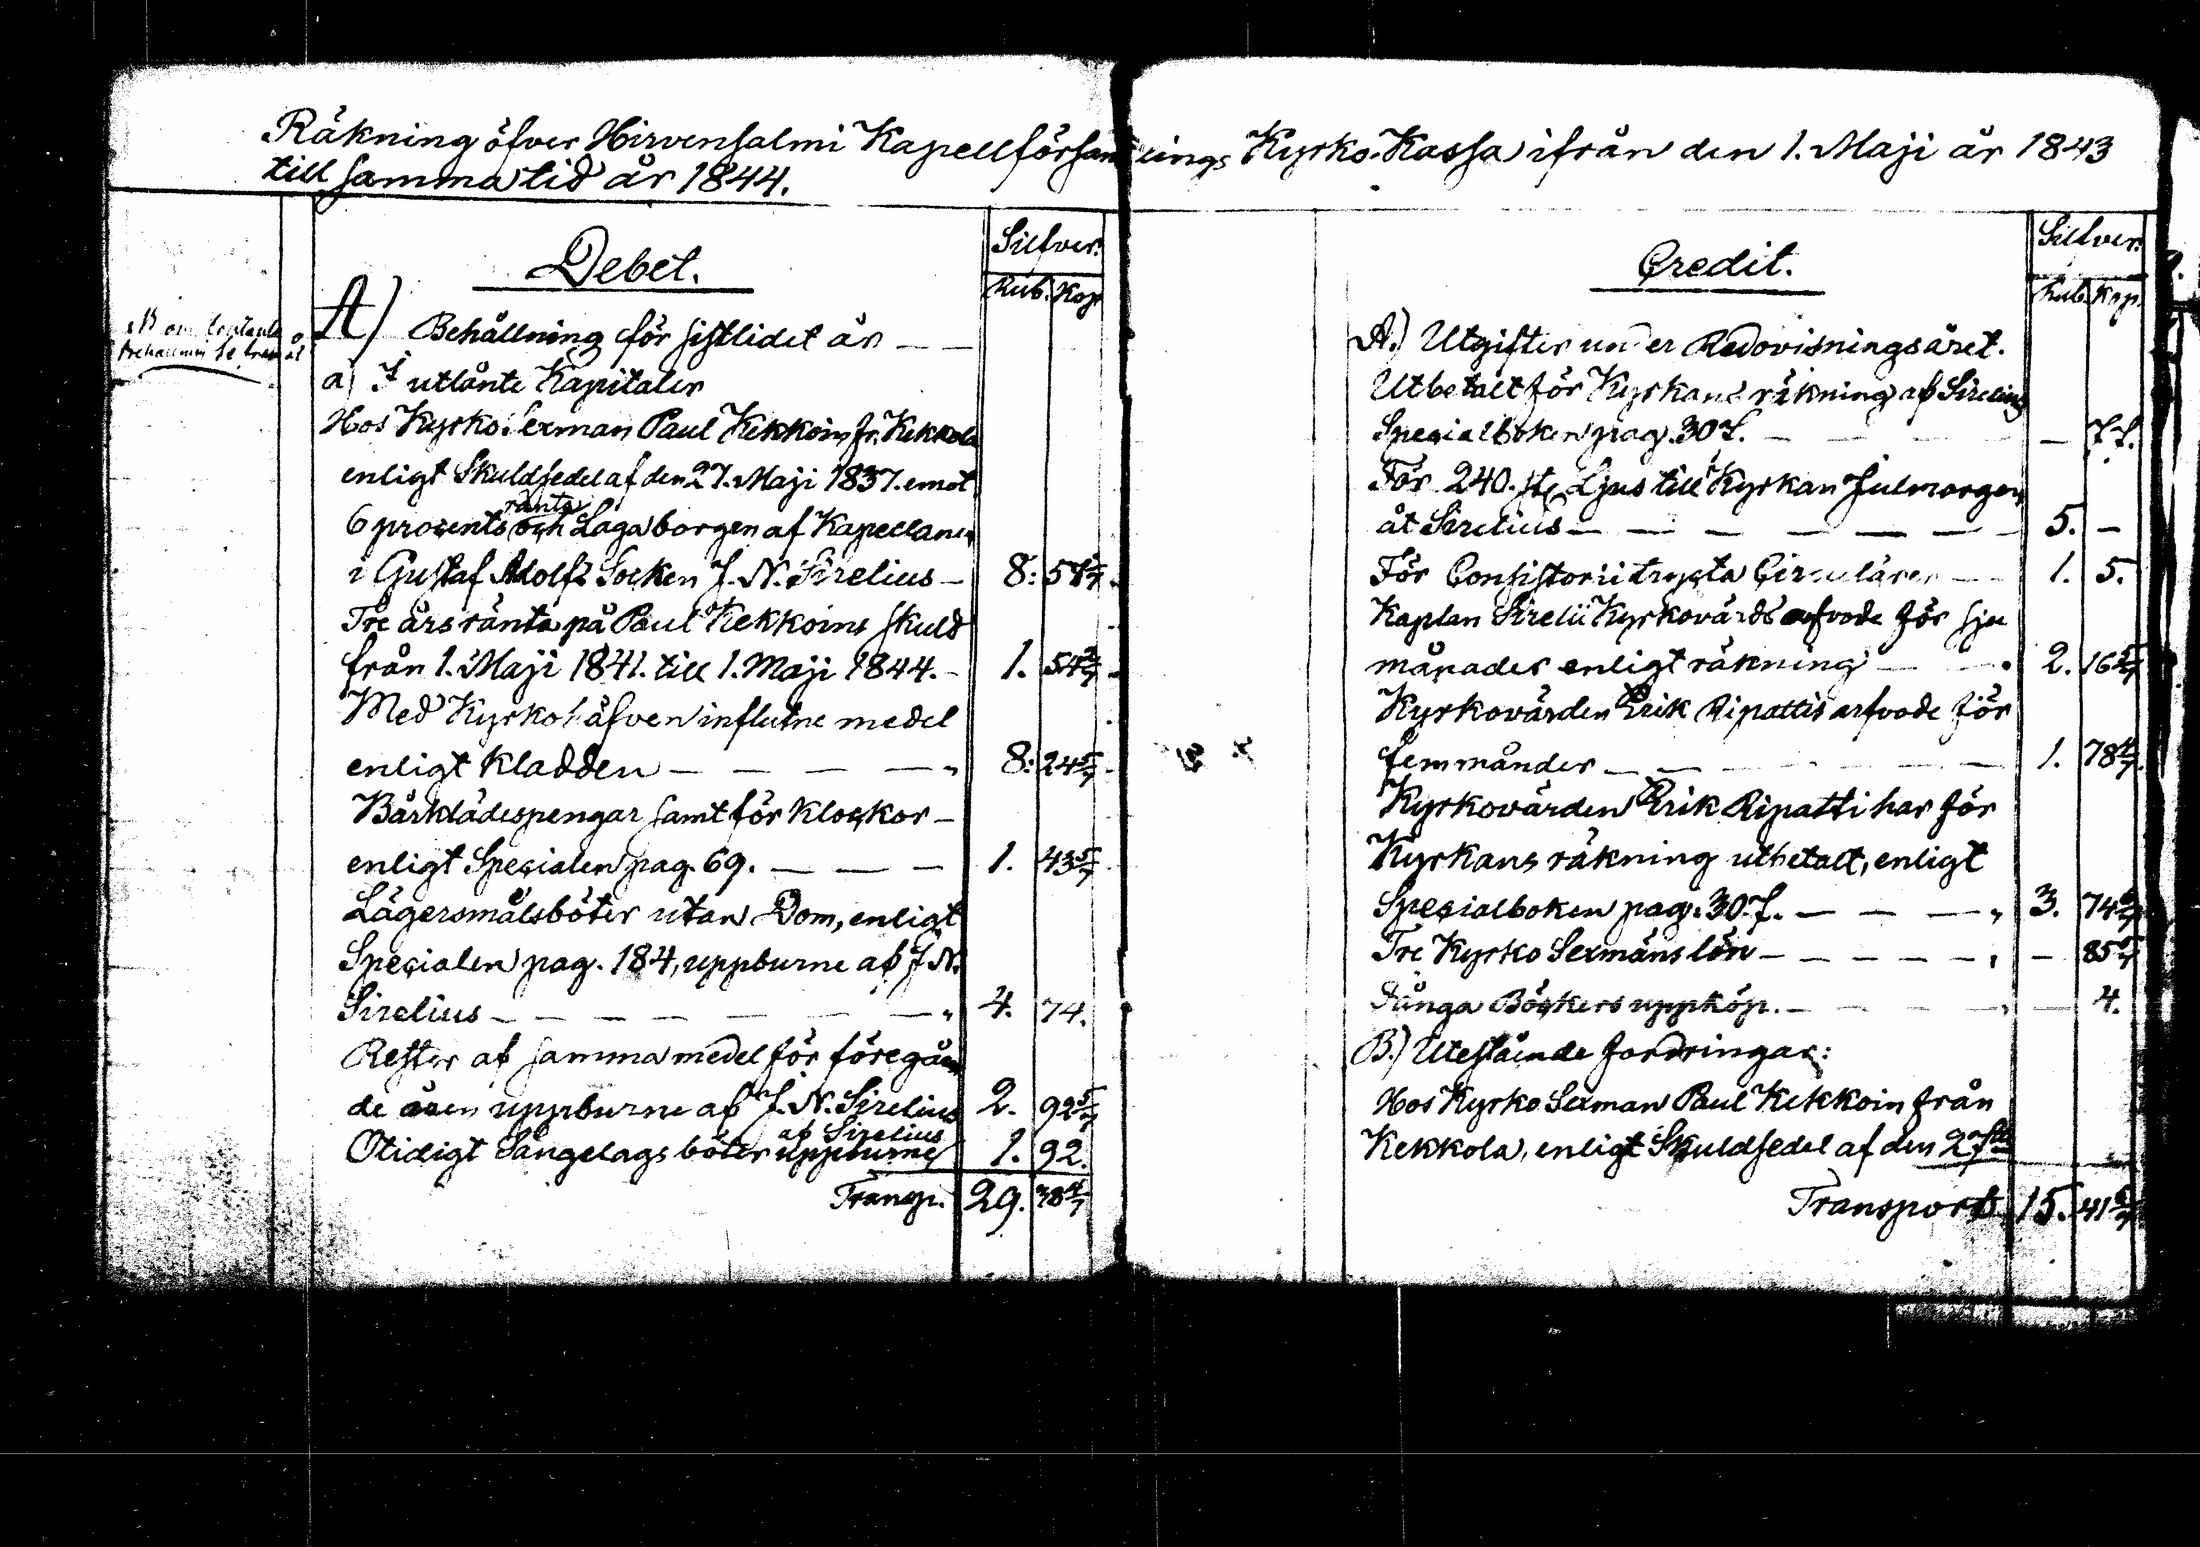 Räkning öfver Hirvensalmi Kapellförsamlings Kyrko-Kassa ifrån den 1. Maji år 1843
till samma tid år 1844.
Debet.
Silfver.
Rub. Kop.
A) Behållning för sistlidet år —
a) I utlånte Kapitaler
Hos Kyrko. Sexman Paul Kekkoin fr. Kekkola
enligt Skuldsedel af den 27. Maji 1837. emot
ränta
6 procents och Laga borgen af Kapellanen
i Gustaf Adolfs Socken J. N. Sirelius — 8: 57 1/7
Tre års ränta på Paul Kekkoins skuld
från 1. Maji 1841. till 1. Maji 1844. - 1. 54 2/7
Med Kyrkohåfven influtne medel
enligt Kladden — — — — 8: 24 5/7
Bårklädespengar samt för Klockor —
enligt Specialen pag. 69. — — — 1. 43 5/7
Lägersmålsböter utan Dom, enligt
Specialen pag. 184, uppburne af J. N.
Sirelius — — — — — — 4. 74.
Rester af samma medel för föregåen
de åren uppburne af J. N. Sirelius 2. 92 5/7
af Sirelius
Otidigt Sängelags böter uppburne 1. 92.
Transp. 29. 38 4/7
Credit.
Silfver.
Rub. Kop.
A.) Utgifter under Redovisningsåret.
Utbetalt för Kyrkans räkning af Sirelius
Specialboken pag. 307. — — — 77.
För 240. st. Ljus till Kyrkan Julmorgon
åt Sirelius — — — — — — 5. —
För Consistorii tryckta Circulärer — 1. 5.
Kaplan Sirelii Kyrkovärds arfvode för sju
månader enligt räkning — — 2. 16 5/7
Kyrkovärden Erik Ripattis arfvode för
fem månder — — — — — 1. 78 4/7
Kyrkovärden Erik Ripatti har för
Kyrkans räkning utbetalt, enligt
Specialboken pag. 307. — — — 3. 74 6/7
Tre Kyrko Sexmäns lön — — — — — 85 5/7
Fånga Böckers uppköp. — — — — 4.
B.) Utestående fordringar:
Hos Kyrko Sexman Paul Kekkoin från
Kekkola, enligt Skuldsedel af den 27de
Transport 15. 41 6/7